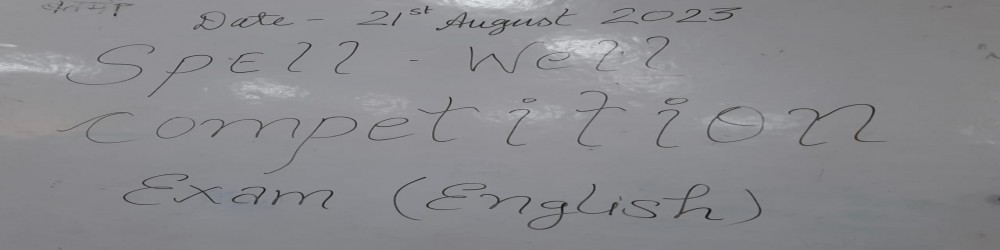 Date - 21st August 2023
Spell - Well
Competition
Exam (English)